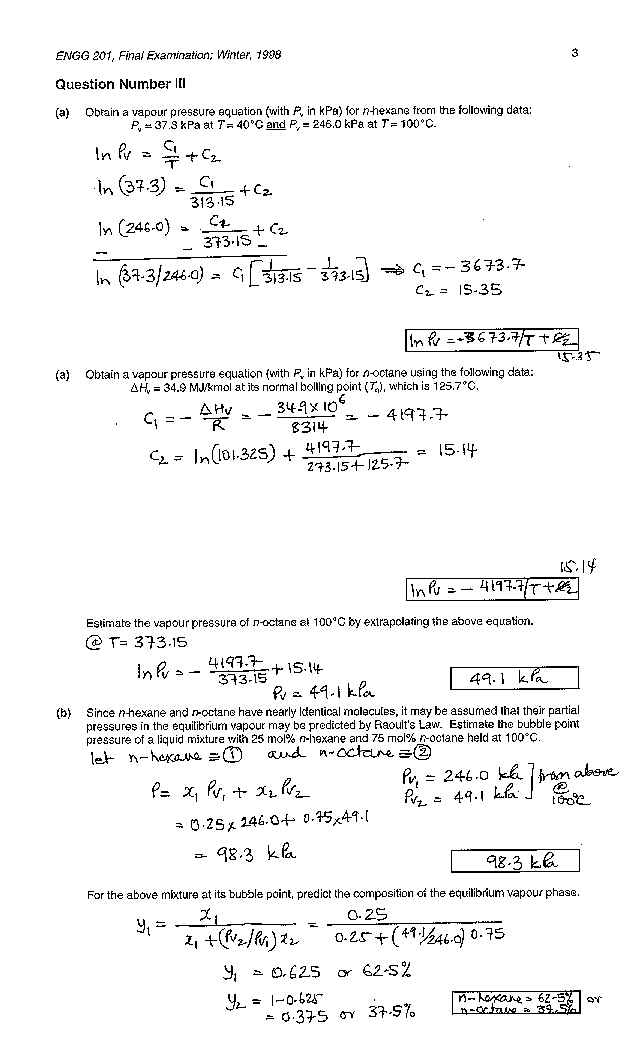 ENGG 201, Final Examination; Winter, 1998
3
Question Number III
(a) Obtain a vapour pressure equation (with Pv in kPa) for n-hexane from the following data:
Pv = 37.3 kPa at T = 40°C and Pv = 246.0 kPa at T = 100°C.
ln Pv = C1/T + C2
ln (37.3) = C1/313.15 + C2
ln (246.0) = C2/373.15 + C2
ln (37.3/246.0) = C1 [1/313.15 - 1/373.15] ⇒ C1 = -3673.7
C2 = 15.35
ln Pv = -3673.7/T + 
15.35
(a) Obtain a vapour pressure equation (with Pv in kPa) for n-octane using the following data:
ΔHv = 34.9 MJ/kmol at its normal boiling point (Tb), which is 125.7°C.
C1 = - ΔHv/R = - 34.9 x 10^6/8314 = - 4197.7
C2 = ln(101.325) + 4197.7/273.15+125.7 = 15.14
15.14
ln Pv = - 4197.7/T + 
Estimate the vapour pressure of n-octane at 100°C by extrapolating the above equation.
@ T= 373.15
ln Pv = - 4197.7/373.15 + 15.14
Pv = 49.1 kPa
49.1 kPa
(b) Since n-hexane and n-octane have nearly identical molecules, it may be assumed that their partial
pressures in the equilibrium vapour may be predicted by Raoult's Law. Estimate the bubble point
pressure of a liquid mixture with 25 mol% n-hexane and 75 mol% n-octane held at 100°C.
let n-hexane ≡ ① and n-octane ≡ ②
Pv1 = 246.0 kPa ] from above
Pv2 = 49.1 kPa @ 100°C
P = x1 Pv1 + x2 Pv2
= 0.25 x 246.0 + 0.75x49.1
= 98.3 kPa
98.3 kPa
For the above mixture at its bubble point, predict the composition of the equilibrium vapour phase.
y1 = x1/x1 +(Pv2/Pv1) x2 = 0.25/0.25 + (49.1/246.0) 0.75
y1 = 0.625 or 62.5%
y2 = 1-0.625
= 0.375 or 37.5%
n-hexane = 62.5% or
n-octane = 37.5%